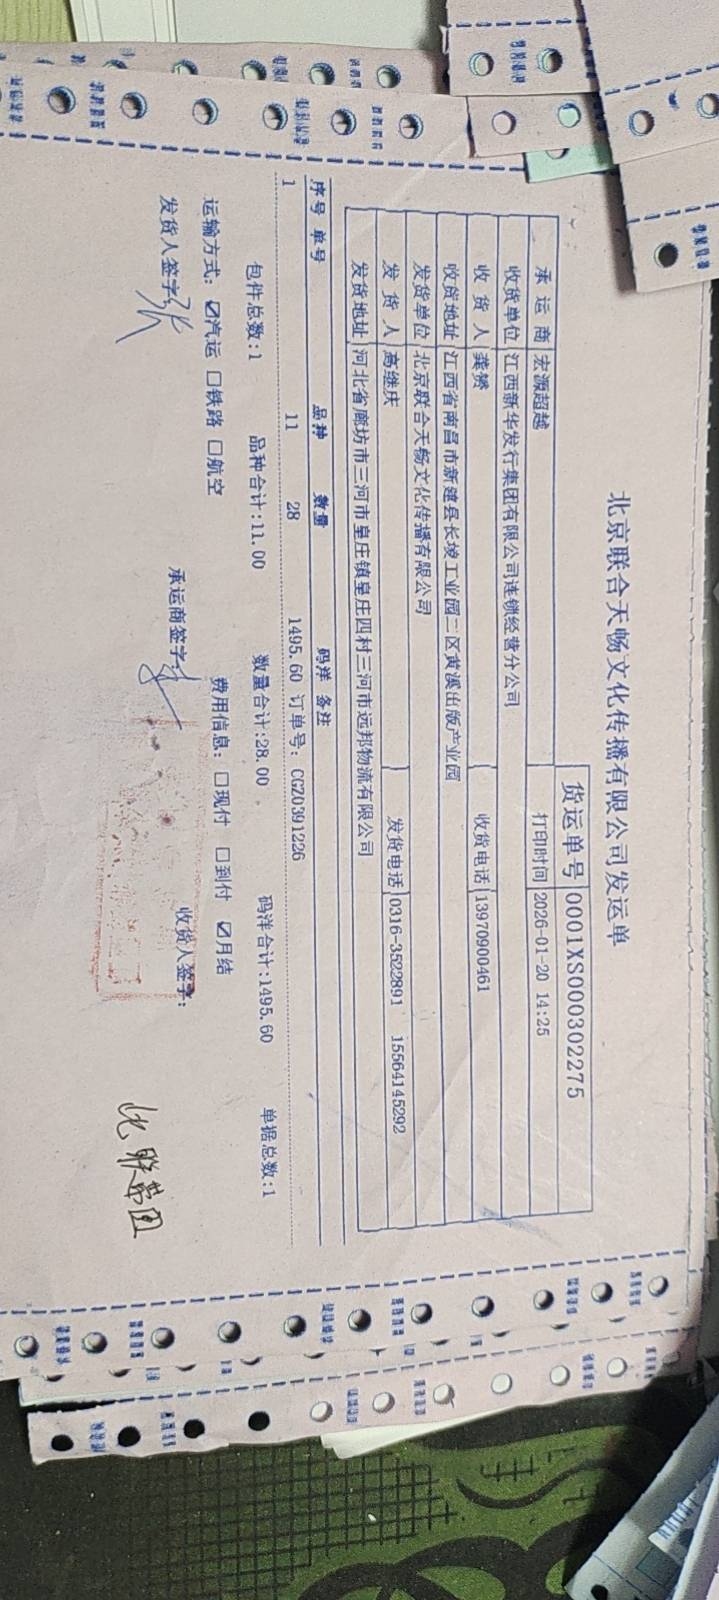 北京联合天畅文化传播有限公司发运单
货运单号 0001XS000302275
承运商 宏源超越 打印时间 2026-01-20 14:25
收货单位 江西新华发行集团有限公司连锁经营分公司
收货人 龚赟 收货电话 13970900461
收货地址 江西省南昌市新建县长堎工业园二区黄溪出版产业园
发货单位 北京联合天畅文化传播有限公司
发货人 高继庆 发货电话 0316-3522891 15564145292
发货地址 河北省廊坊市三河市皇庄镇皇庄四村三河市远邦物流有限公司
序号 单号 品种 数量 码洋 备注
1 11 28 1495.60 订单号: CGZ0391226
包件总数:1 品种合计:11.00 数量合计:28.00 码洋合计:1495.60 单据总数:1
运输方式: ☑汽运 □铁路 □航空 费用信息: □现付 □到付 ☑月结
发货人签字: 承运商签字: 收货人签字:
此联带回